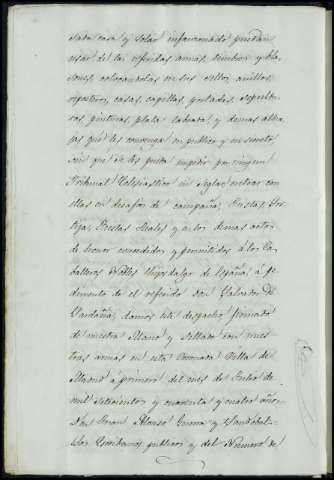 casa y solar infanzonado puedan
usar de las referidas armas, timbres y bla-
sones, colocandolas en sus sellos, anillos,
reposteros, casas, capillas, portadas, sepultu-
ras, pinturas, plata labrada y demas alha-
jas que les convenga en publico y en secreto,
sin que se les pueda impedir por ningun
Tribunal Eclesiastico ni Seglar, entrar con
ellas en desafios de campaña, Justas, Sor-
tija, Fiestas Reales y otros demas actos
de honor concedidos y permitidos á los Ca-
balleros Nobles Hijos-dalgo de España; á pe-
dimento de el referido Don Salvador de
damos este despacho firmado
de nuestra Mano y Sellado con nues-
tras armas en esta Coronada Villa de
Madrid á primero del mes de Julio de
mil setecientos y cuarenta y cuatro años-
Don Juan Alonso Guerra y Sandobal-
Los Escribanos publicos y del Numero de